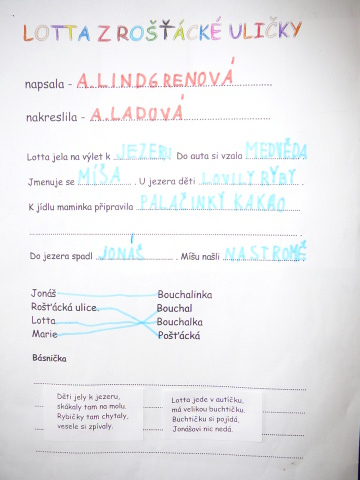 LOTTA Z ROŠŤÁCKÉ ULIČKY
napsala - A.LINDGRENOVÁ
nakreslila - A.LADOVÁ
Lotta jela na výlet k JEZERU Do auta si vzala MEDVĚDA
Jmenuje se MÍŠA . U jezera děti LOVILY RYBY .
K jídlu maminka připravila PALAČINKÝ KAKAO
Do jezera spadl JONÁŠ . Míšu našli NA STROMĚ
Jonáš Bouchalinka
Rošťácká ulice Bouchal
Lotta Bouchalka
Marie Pošťácká
Básnička
Děti jely k jezeru,
skákaly tam na molu.
Rybičky tam chytaly,
vesele si zpívaly.
Lotta jede v autíčku,
má velikou buchtičku.
Buchtičku si pojídá,
Jonášovi nic nedá.